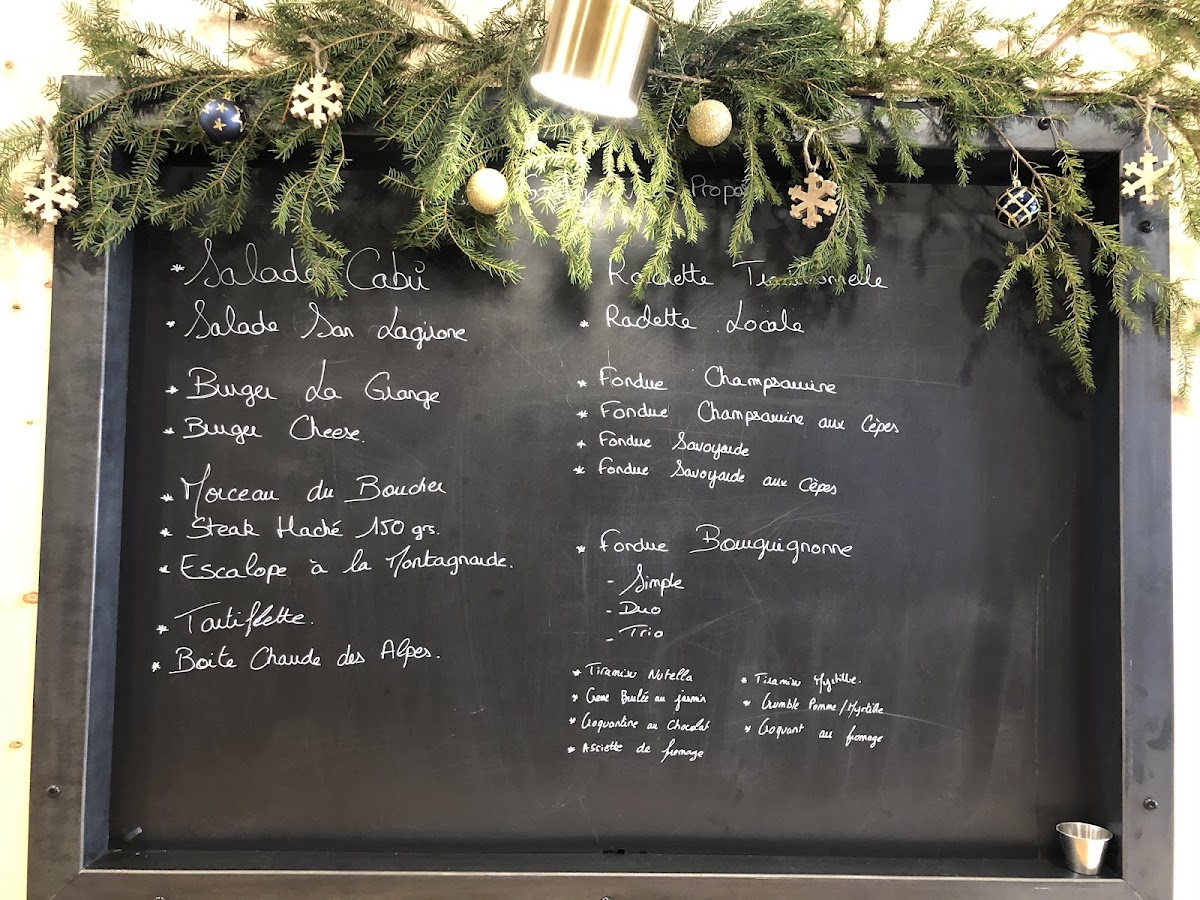 Propo
* Salade Cabù
* Salade San
* Burger La Grange
* Burger Cheese.
* Morceau du Boucher
* Steak Haché 150 grs.
* Escalope à la Montagnarde.
* Tartiflette.
* Boite Chaude des Alpes.
Raclette Traditionnelle
* Raclette Locale
* Fondue Champsaurine
* Fondue Champsaurine aux Cèpes
* Fondue Savoyarde
* Fondue Savoyarde aux Cèpes
* Fondue Bourguignonne
- Simple
- Duo
- Trio
* Tiramisu Nutella
* Creme Brulée au jasmin
* Croquantine au Chocolat
* Assiette de fromage
* Tiramisu Myrtille.
* Crumble Pomme/Myrtille
* Croquant au fromage